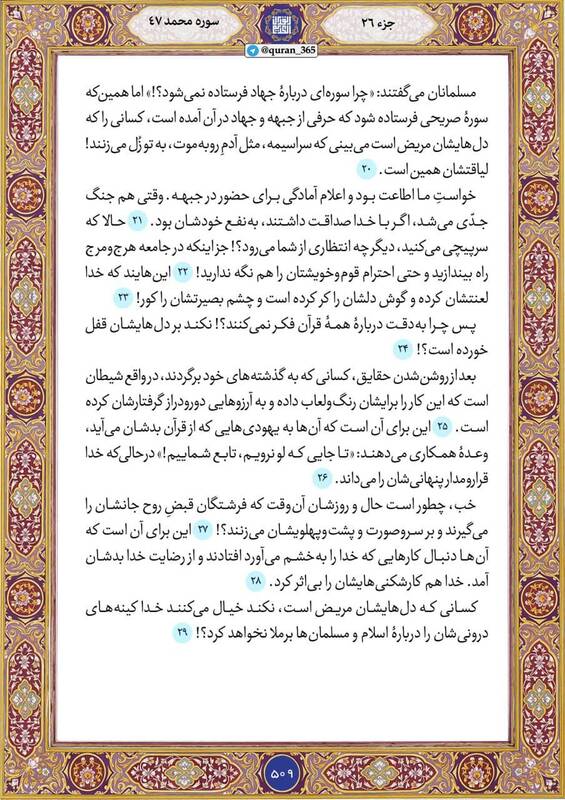 جزء ۲۶
سوره محمد ۴۷
@quran_365
مسلمانان می‌گفتند: «چرا سوره‌ای دربارهٔ جهاد فرستاده نمی‌شود؟!» اما همین‌که
سورهٔ صریحی فرستاده شود که حرفی از جبهه و جهاد در آن آمده است، کسانی را که
دل‌هایشان مریض است می‌بینی که سراسیمه، مثل آدمِ روبه‌موت، به تو زُل می‌زنند!
لیاقتشان همین است. ۲۰
خواستِ ما اطاعت بود و اعلام آمادگی برای حضور در جبهه. وقتی هم جنگ
جدّی می‌شد، اگر با خدا صداقت داشتند، به‌نفع خودشان بود. ۲۱ حالا که
سرپیچی می‌کنید، دیگر چه انتظاری از شما می‌رود؟! جز اینکه در جامعه هرج‌ومرج
راه بیندازید و حتی احترام قوم‌وخویشتان را هم نگه ندارید! ۲۲ این‌هایند که خدا
لعنتشان کرده و گوش دلشان را کر کرده است و چشم بصیرتشان را کور! ۲۳
پس چرا به‌دقت دربارهٔ همهٔ قرآن فکر نمی‌کنند؟! نکند بر دل‌هایشان قفل
خورده است؟! ۲۴
بعد از روشن‌شدن حقایق، کسانی که به گذشته‌های خود برگردند، در واقع شیطان
است که این کار را برایشان رنگ‌ولعاب داده و به آرزوهایی دورودراز گرفتارشان کرده
است. ۲۵ این برای آن است که آن‌ها به یهودی‌هایی که از قرآن بدشان می‌آید،
وعدهٔ همکاری می‌دهند: «تا جایی که لو نرویم، تابع شماییم!» درحالی‌که خدا
قرارومدار پنهانی‌شان را می‌داند. ۲۶
خب، چطور است حال و روزشان آن‌وقت که فرشتگان قبضِ روح جانشان را
می‌گیرند و بر سروصورت و پشت‌وپهلویشان می‌زنند؟! ۲۷ این برای آن است که
آن‌ها دنبال کارهایی که خدا را به‌خشم می‌آورد افتادند و از رضایت خدا بدشان
آمد. خدا هم کارشکنی‌هایشان را بی‌اثر کرد. ۲۸
کسانی که دل‌هایشان مریض است، نکند خیال می‌کنند خدا کینه‌های
درونی‌شان را دربارهٔ اسلام و مسلمان‌ها برملا نخواهد کرد؟! ۲۹
۵۰۹